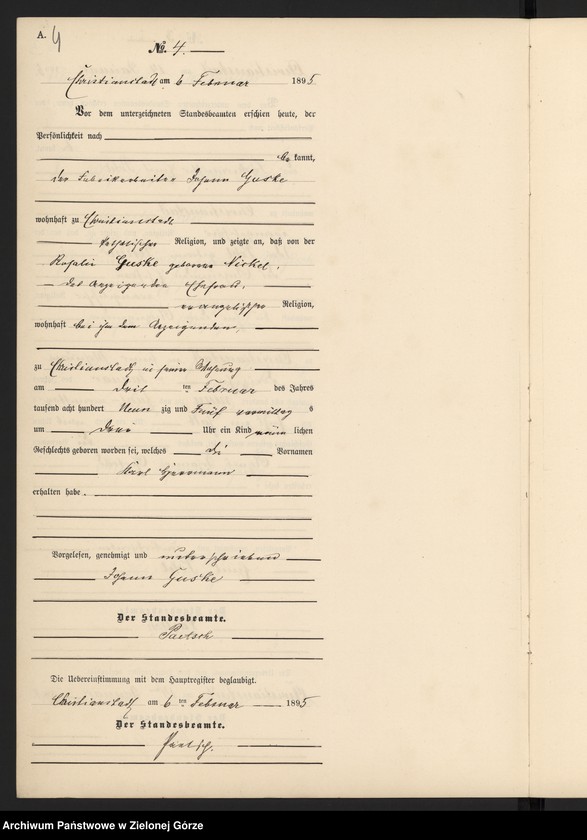 A. 4
No. 4.
Christianstadt am 6 Februar 1895
Vor dem unterzeichneten Standesbeamten erschien heute, der
Persönlichkeit nach
bekannt,
der Fabrikarbeiter Johann Guske
wohnhaft zu Christianstadt
katholischer Religion, und zeigte an, daß von der
Rosalie Guske geborene Nickel,
des Anzeigenden Ehefrau,
evangelischer Religion,
wohnhaft bei ihm dem Anzeigenden,
zu Christianstadt, in seiner Wohnung
am ten Februar des Jahres
tausend acht hundert Neun zig und Fünf vormittag s
um Uhr ein Kind männlichen
Geschlechts geboren worden sei, welches die Vornamen
Karl Herrmann
erhalten habe.
Vorgelesen, genehmigt und unterschrieben
Johann Guske
Der Standesbeamte.
Paetsch
Die Uebereinstimmung mit dem Hauptregister beglaubigt.
Christianstadt am 6 ten Februar 1895
Der Standesbeamte.
Paetsch.
Archiwum Państwowe w Zielonej Górze